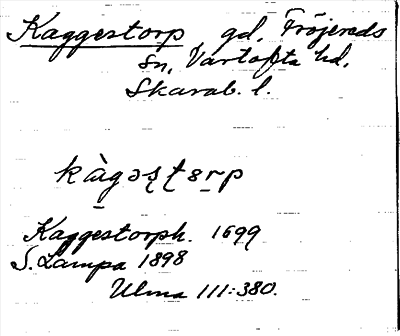 Kaggestorp gd, Fröjereds
sn, Vartofta hd,
Skarab. l.
kàgəʂʈɵrp
Kaggestorph. 1699
S. Lampa 1898
Ulma 111:380.